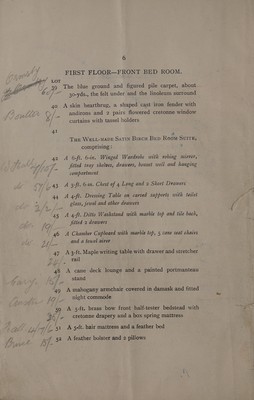 6
FIRST FLOOR—FRONT BED ROOM.
LOT
39 The blue ground and figured pile carpet, about
30-yds., the felt under and the linoleum surround
40 A skin hearthrug, a shaped cast iron fender with
andirons and 2 pairs flowered cretonne window
curtains with tassel holders
8/-
41
THE WELL-MADE SATIN BIRCH BED ROOM SUITE,
comprising:
42 A 6-ft. 6-in. Winged Wardrobe with robing mirror,
fitted tray shelves, drawers, bonnet well and hanging
compartment
43 A 3-ft. 6-in. Chest of 4 Long and 2 Short Drawers
44 A 4-ft. Dressing Table on carved supports with toilet
glass, jewel and other drawers
45 A 4-ft. Ditto Washstand with marble top and tile back,
fitted 2 drawers
46 A Chamber Cupboard with marble top, 3 cane seat chairs
and a towel airer
21/-
47 A 3-ft. Maple writing table with drawer and stretcher
rail
48 A cane deck lounge and a painted portmanteau
stand
49 A mahogany armchair covered in damask and fitted
night commode
19/-
50 A 3-ft. brass bow front half-tester bedstead with
cretonne drapery and a box spring mattress
51 A 3-ft. hair mattress and a feather bed
52 A feather bolster and 2 pillows